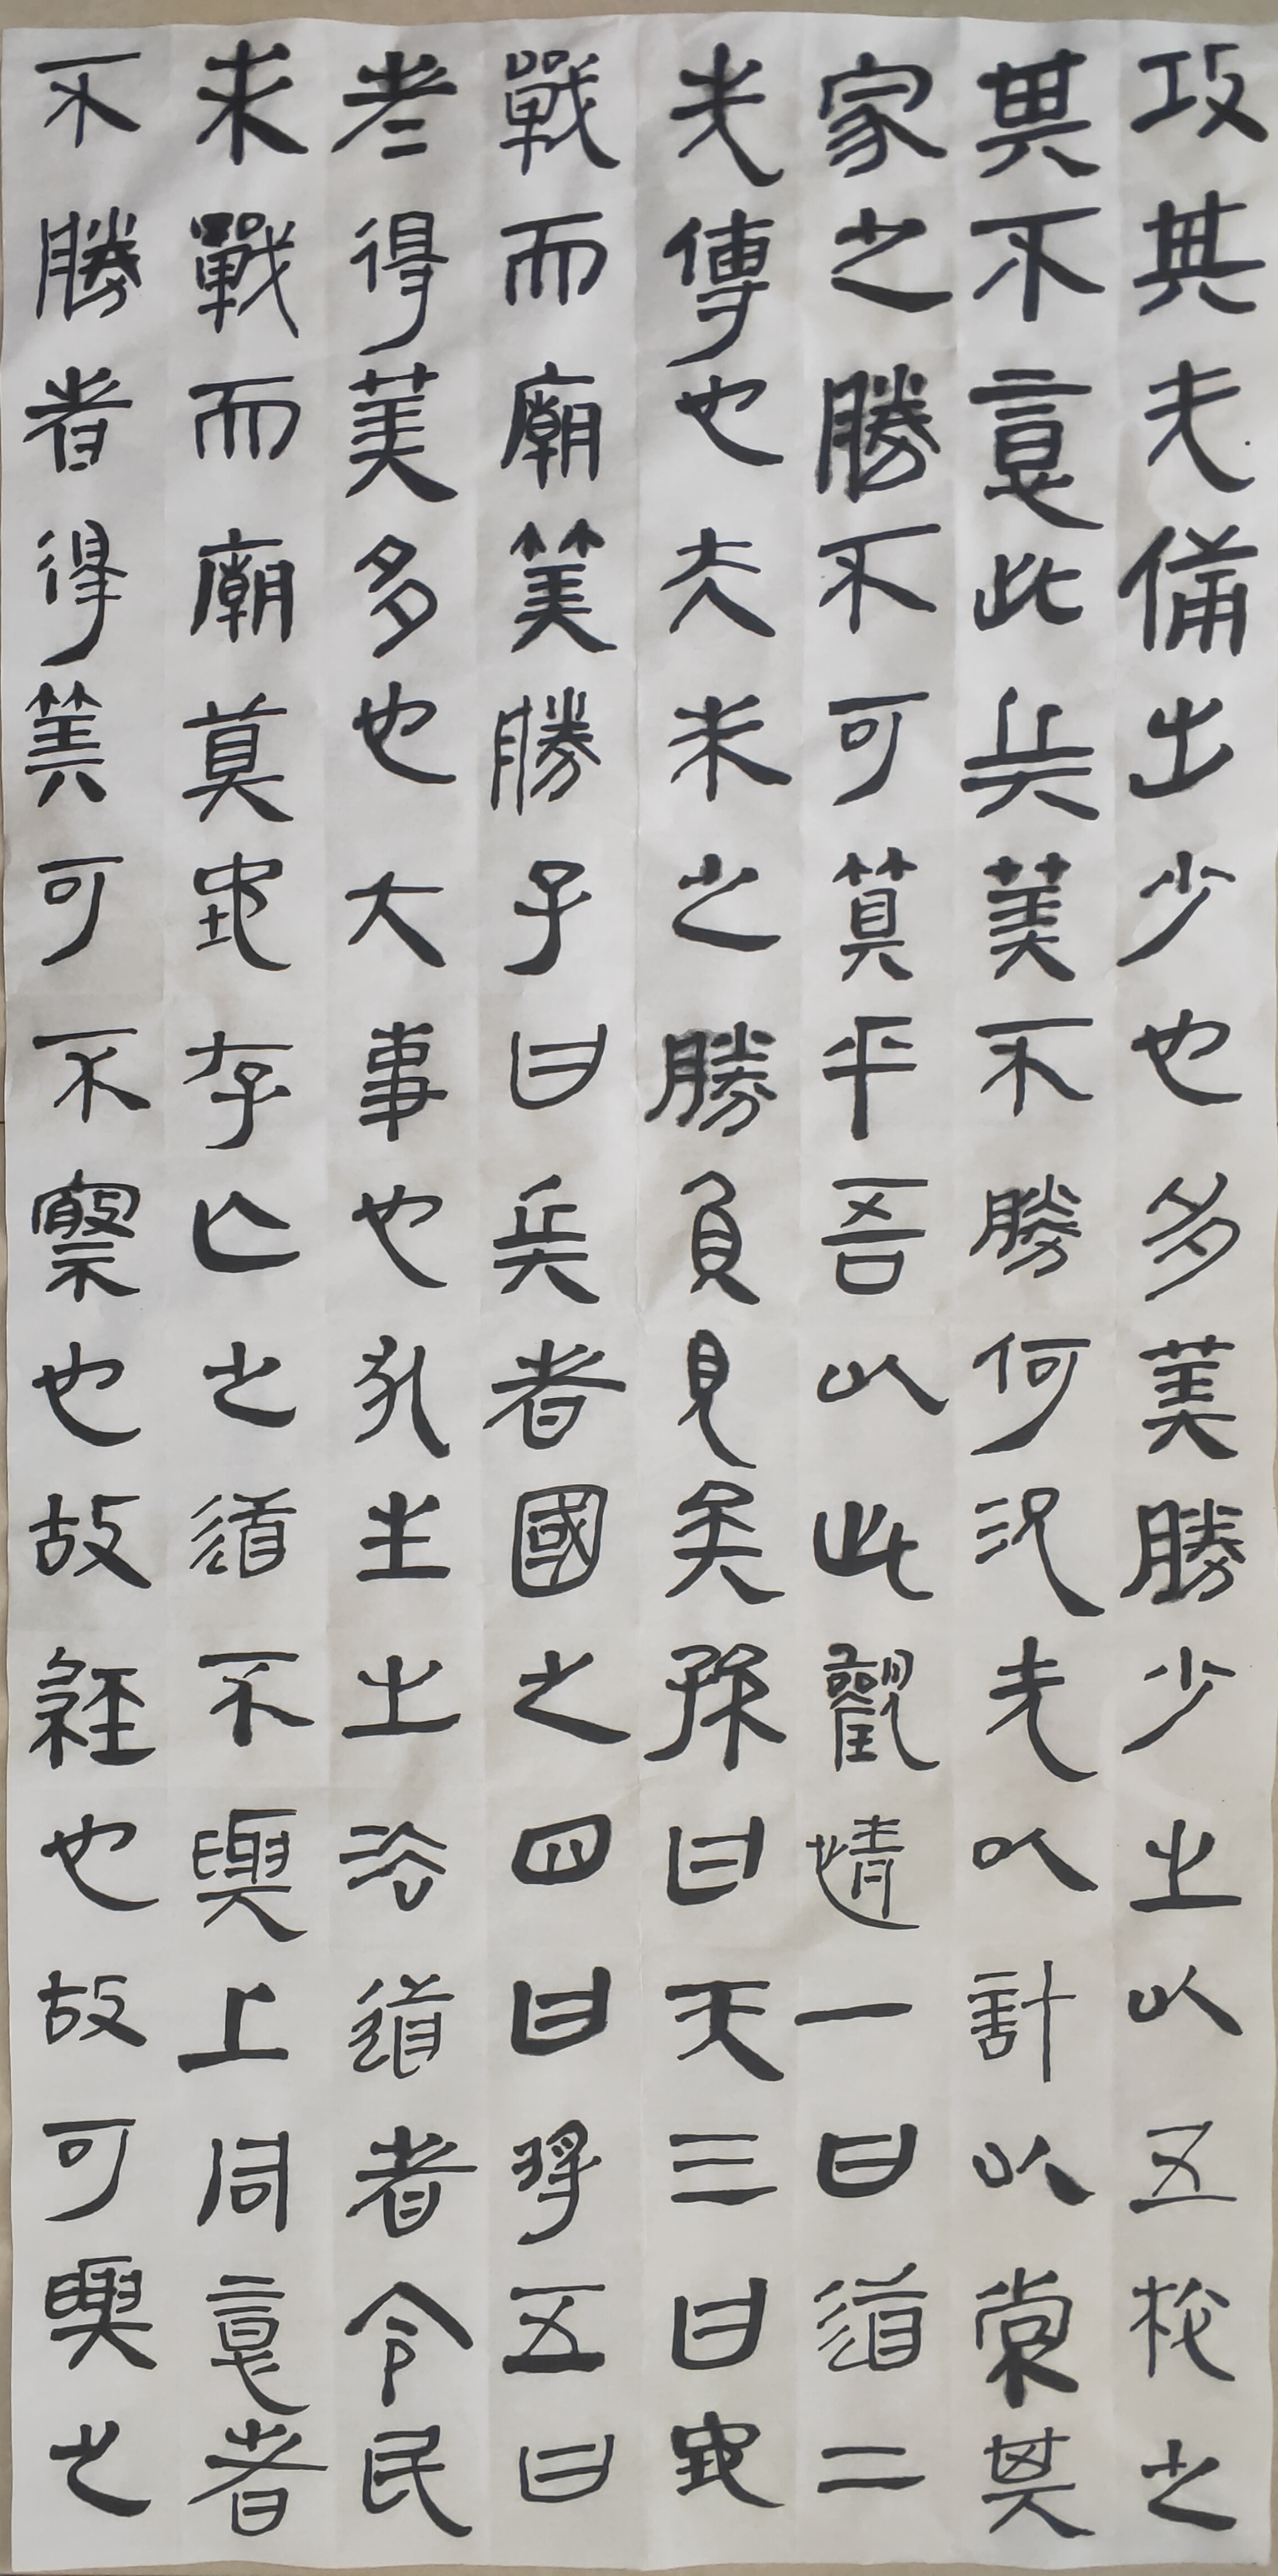 攻其无備出少也多筭勝少之以五校之
其不意此兵筭不勝何況无以計以索其
家之勝不可筭乎吾以此觀情一曰道二
先傳也夫未之勝負見矣孫曰天三曰地
戰而廟筭勝子曰兵者國之四曰將五曰
者得筭多也大事也死生之法道者令民
未戰而廟筭地存亡之道不與上同意者
不勝者得筭可不察也故經也故可與之